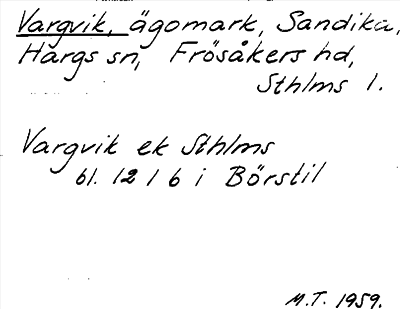 Vargvik, ägomark, Sandika,
Hargs sn, Frösåkers hd,
Sthlms l.
Vargvik ek Sthlms
bl. 12 1 6 i Börstil
M.T. 1959.